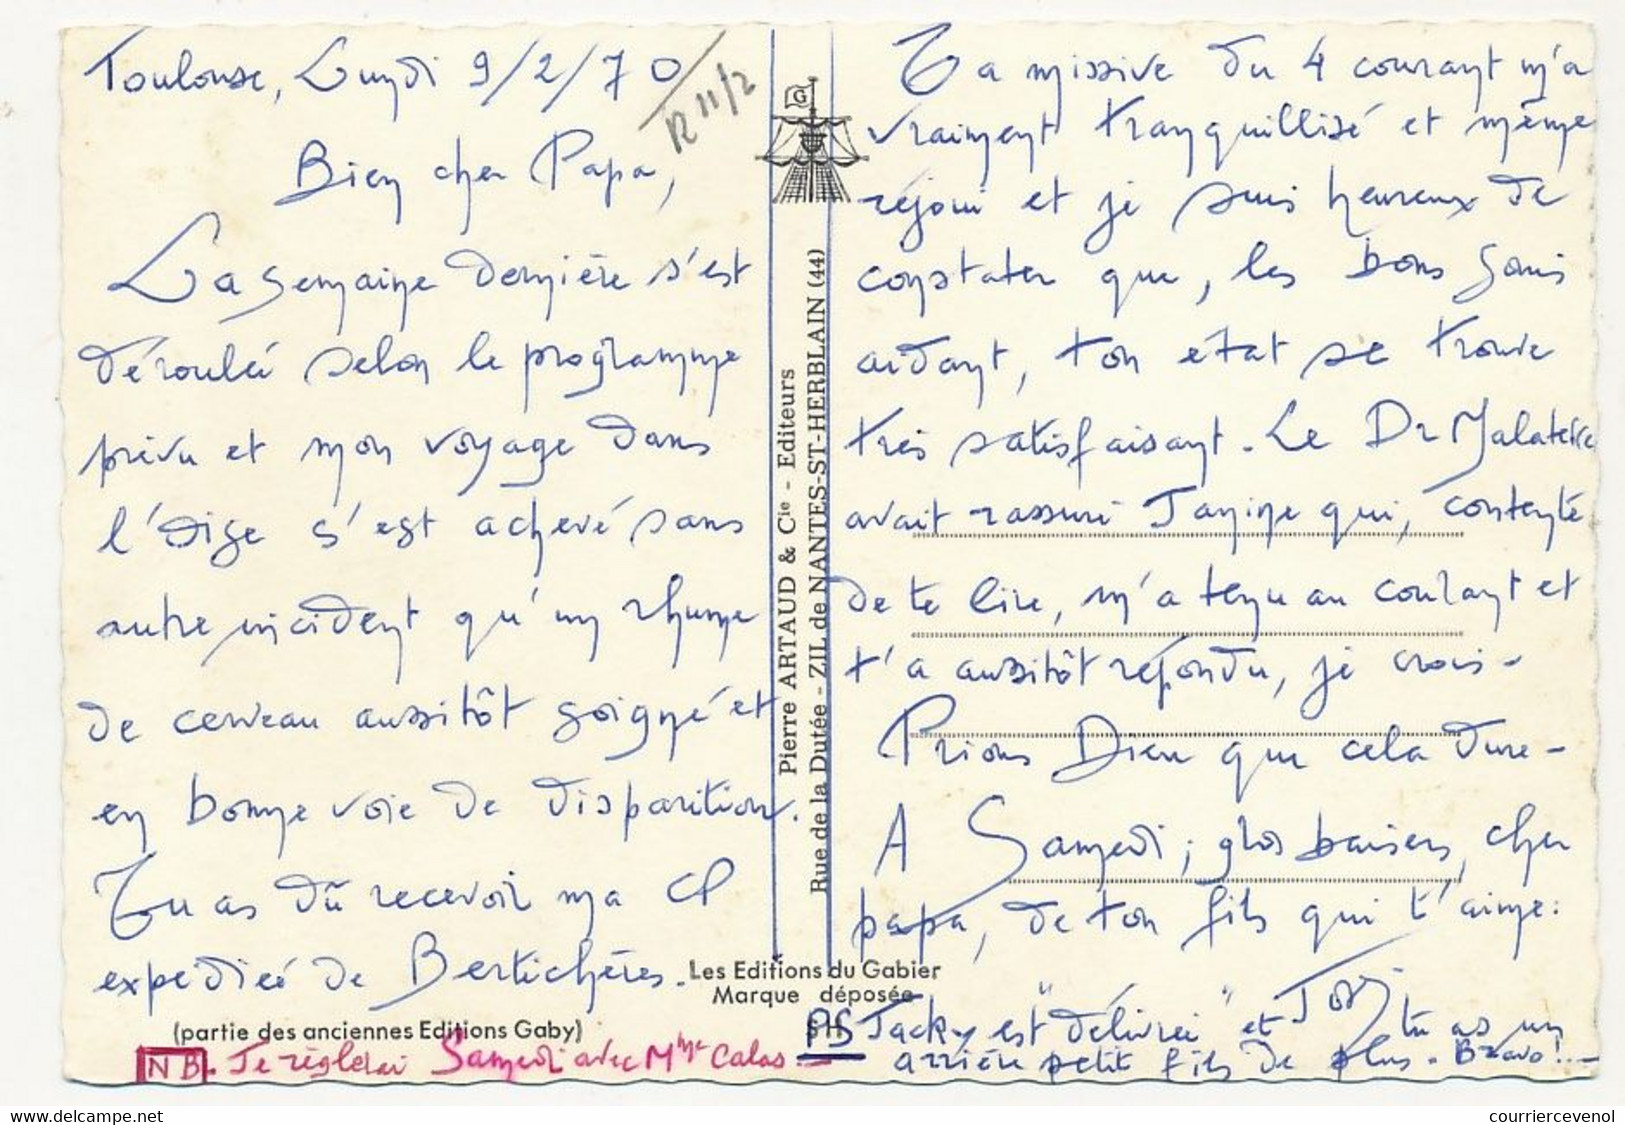 Toulouse, Lundi 9/2/70
R 11/2
Bien cher Papa,
La semaine dernière s'est
déroulée selon le programme
prévu et mon voyage dans
l'Oise s'est achevé sans
autre incident qu'un rhume
de cerveau aussitôt soigné et
en bonne voie de disparition.
Tu as dû recevoir ma CP
expédiée de Bertichères.
(partie des anciennes Editions Gaby)
NB. Je règlerai Samedi avec Mme Calas
G
Pierre ARTAUD & Cie - Editeurs
Rue de la Dutée - ZIL de NANTES-ST-HERBLAIN (44)
Les Editions du Gabier
Marque déposée
Ta missive du 4 courant m'a
vraiment tranquillisé et même
réjoui et je suis heureux de
constater que, les bons soins
aidant, ton état se trouve
très satisfaisant. Le Dr Malaterre
avait rassuré Janine qui, contente
de te lire, m'a tenu au courant et
t'a aussitôt répondu, je crois -
Prions Dieu que cela dure -
A Samedi; gros baisers, cher
papa, de ton fils qui t'aime:
PS Jacky est "délivrée" et tu as un
arrière petit fils de plus. Bravo!..
courriercevenol
www.delcampe.net